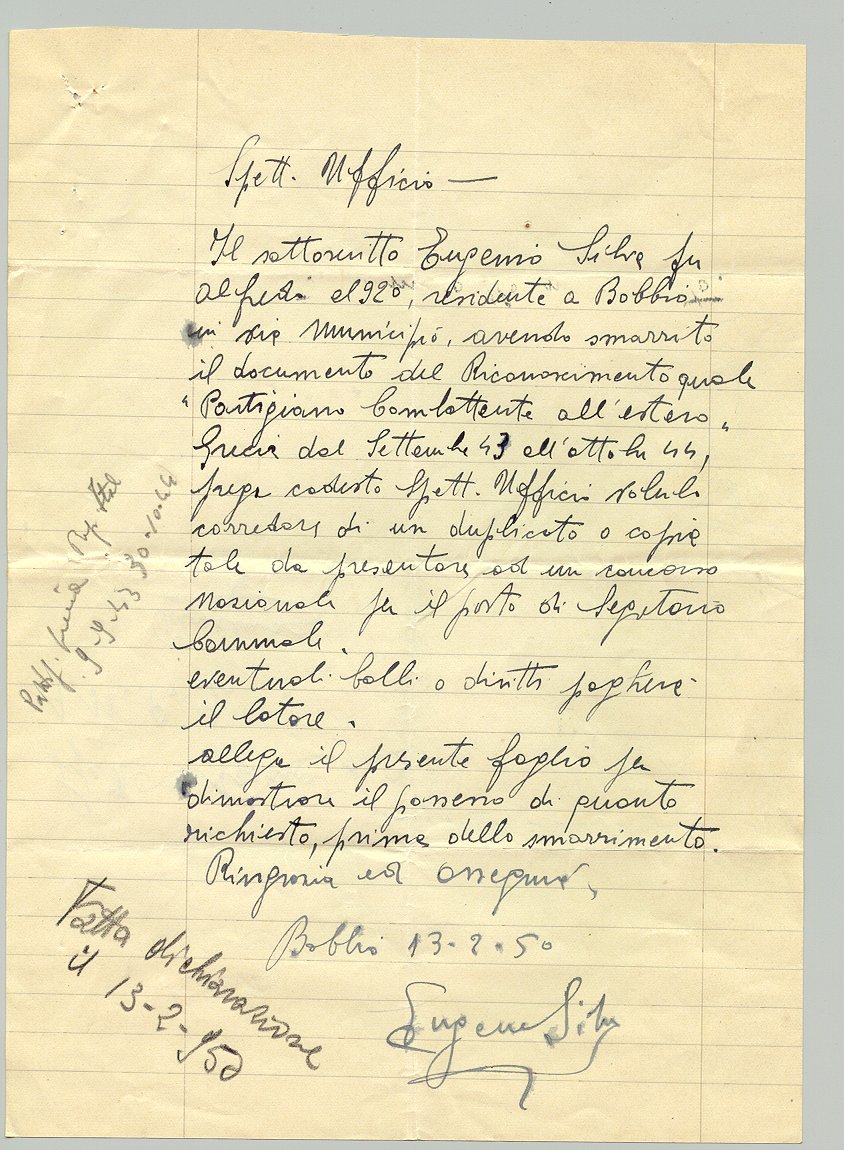 Spett. Ufficio —
Il sottoscritto Eugenio Silva fu
Alfredo el 920, residente a Bobbio
in via Municipio, avendo smarrito
il documento del Riconoscimento quale
"Partigiano Combattente all'estero"
Grecia dal Settembre 43 all'ottobre 44,
prega codesto Spett. Ufficio volerlo
corredare di un duplicato o copia
tale da presentare ad un concorso
Nazionale per il posto di Segretario
Comunale.
eventuali bolli o diritti pagherà
il latore.
allega il presente foglio per
dimostrare il possesso di quanto
richiesto, prima dello smarrimento.
Ringrazia ed ossequia,
Bobbio 13-2-50
Eugenio Silva
Grecia
9-9-43 30-10-44
Fatta dichiarazione
il 13-2-950